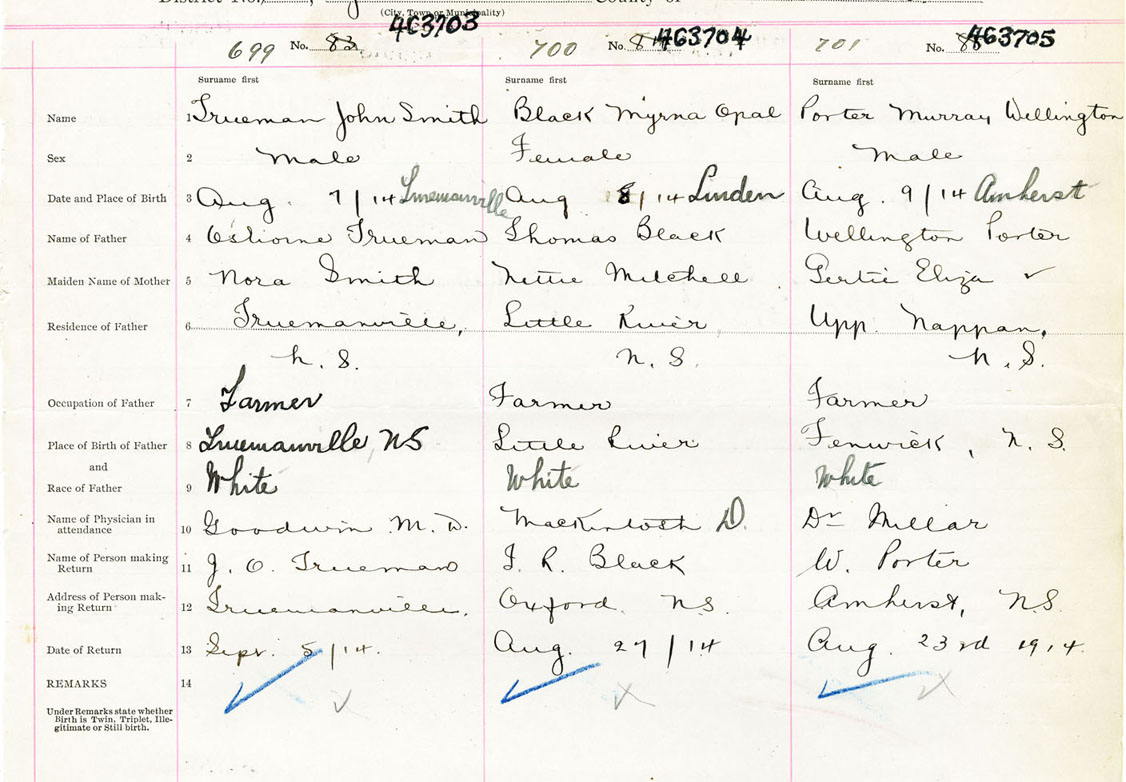 (City, Town or Municipality)
463703 463704 463705
699 No. 83 700 No. 701 No.
Surname first Surname first Surname first
Name 1 Trueman John Smith Black Myrna Opal Porter Murray Wellington
Sex 2 Male Female Male
Date and Place of Birth 3 Aug. 7/14 Truemanville Aug 8/14 Linden Aug. 9/14 Amherst
Name of Father 4 Osborne Trueman Thomas Black Wellington Porter
Maiden Name of Mother 5 Nora Smith Nettie Mitchell Gertie Eliza ✓
Residence of Father 6 Truemanville, Little River Upp. Nappan,
N. S. N. S. N. S.
Occupation of Father 7 Farmer Farmer Farmer
Place of Birth of Father 8 Truemanville, NS Little River Fenwick, N. S.
and
Race of Father 9 White White White
Name of Physician in
attendance 10 Goodwin M. D. MacKintosh D. Dr Millar
Name of Person making
Return 11 J. O. Trueman T. R. Black W. Porter
Address of Person mak-
ing Return 12 Truemanville. Oxford N.S. Amherst, N.S.
Date of Return 13 Sept. 5/14. Aug. 27/14 Aug. 23rd 1914.
REMARKS 14
Under Remarks state whether
Birth is Twin, Triplet, Ille-
gitimate or Still birth.